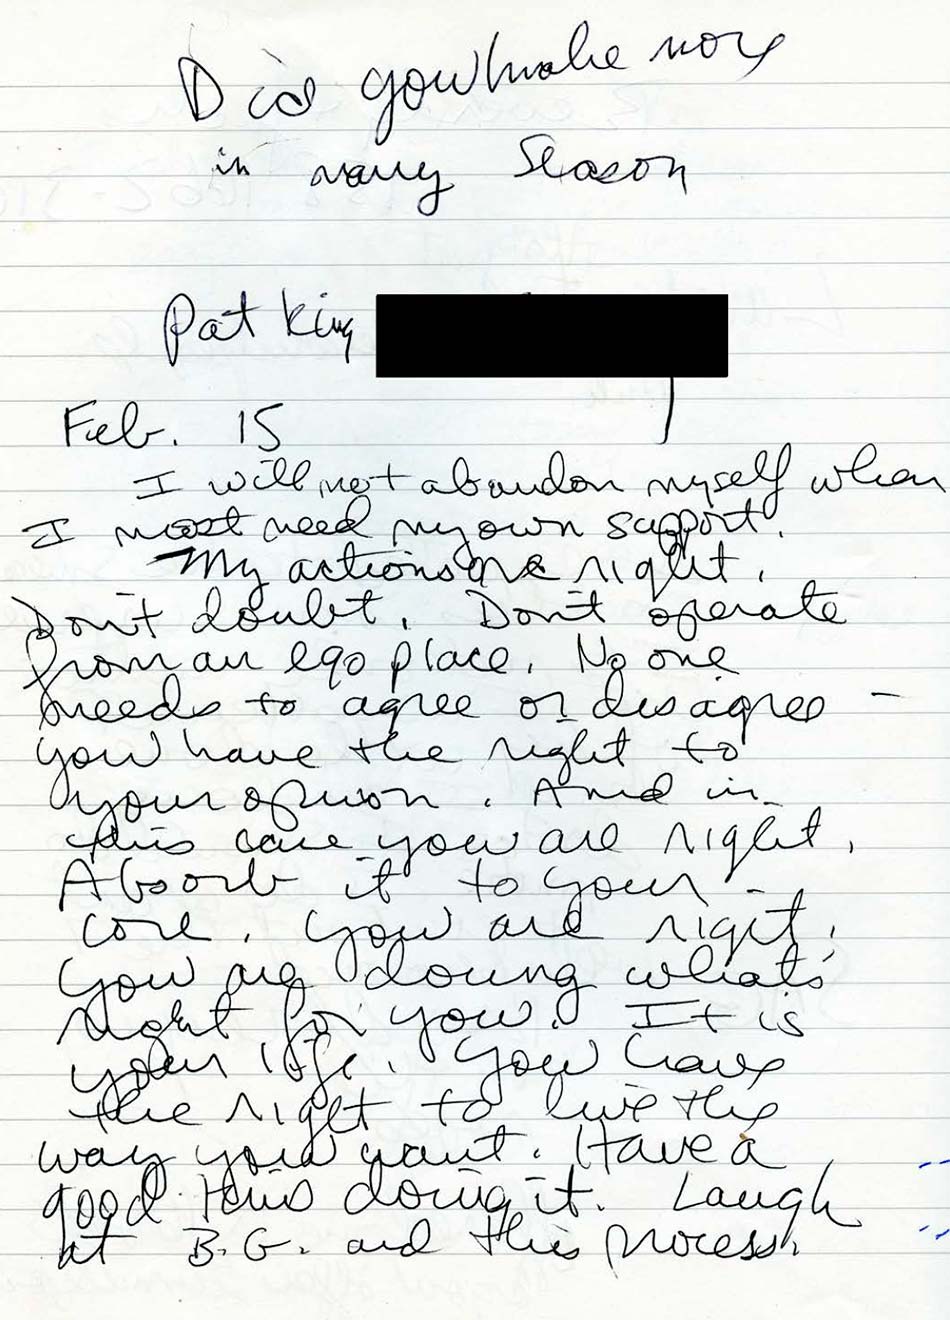 Did you make more
in rainy Season
Pat King
Feb. 15
I will not abandon myself when
I most need my own support.
My actions are right.
Don't doubt. Don't operate
from an ego place. No one
needs to agree or disagree –
you have the right to
your opinion. And in
this case you are right.
Absorb it to your
core. You are right.
You are doing what's
right for you. It is
your life. You have
the right to live the
way you want. Have a
good time doing it. Laugh
at B.G. and this process.